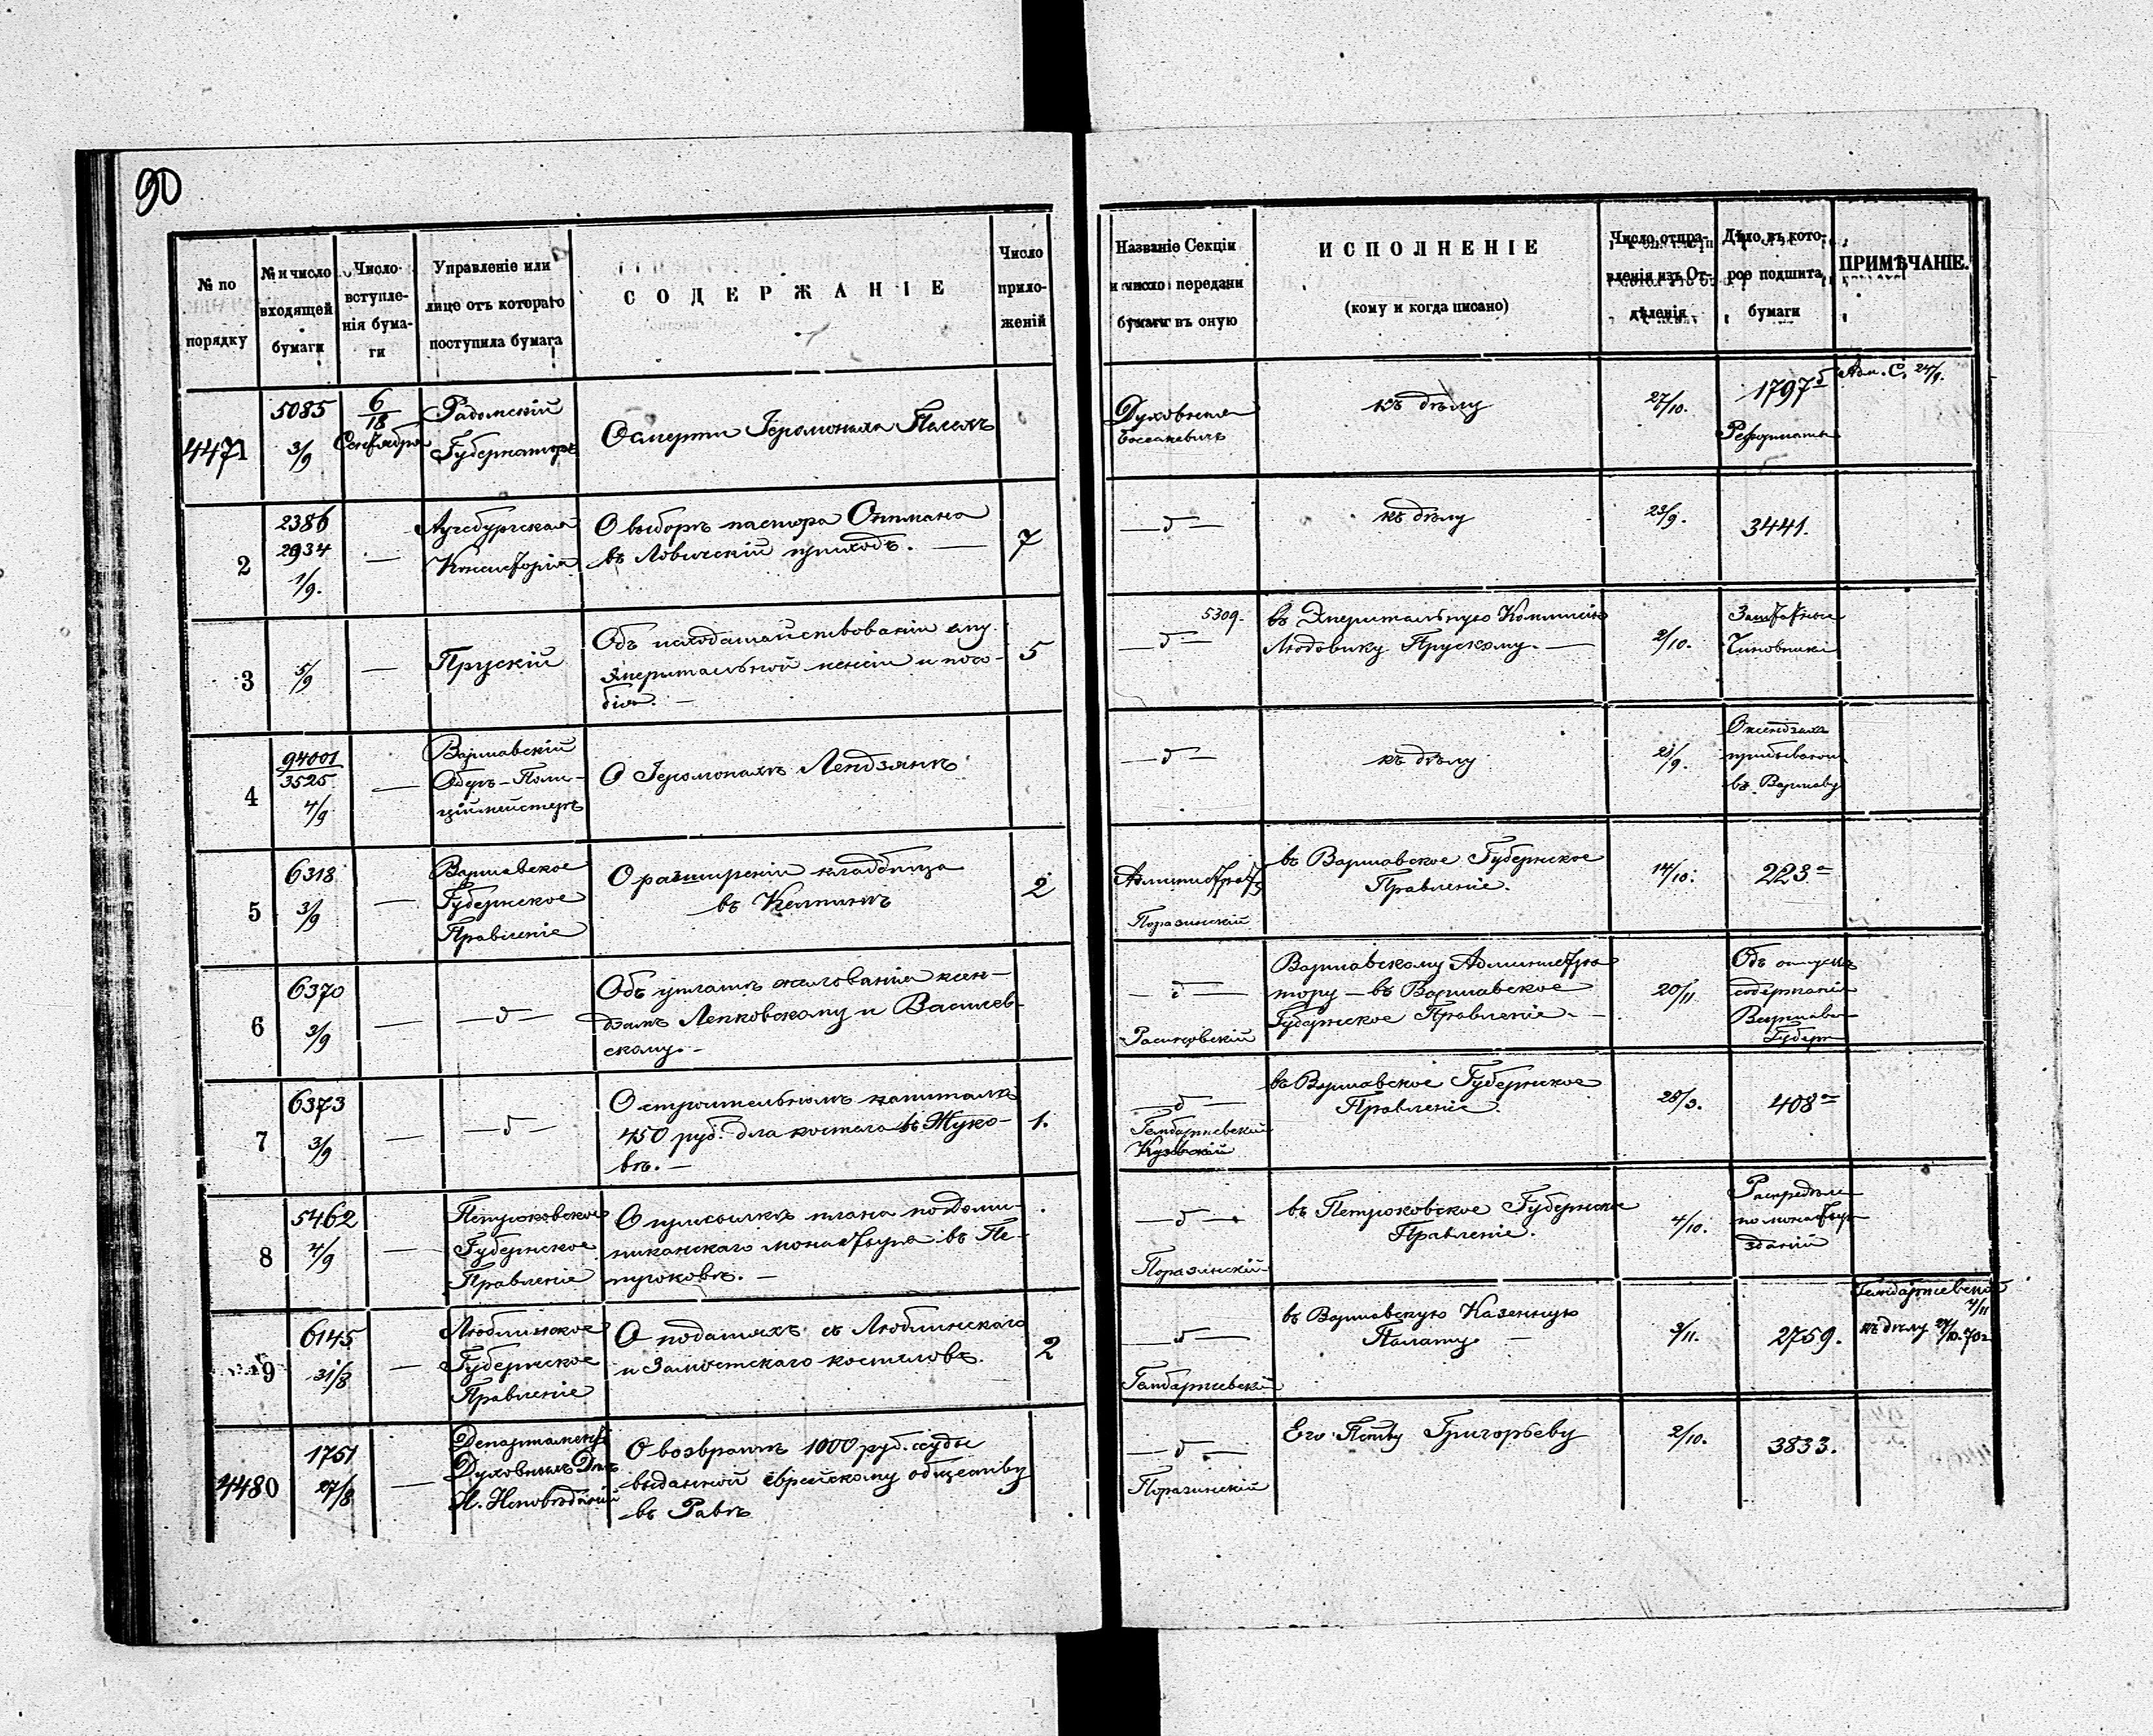 90
№ по порядку
№ и число входящей бумаги
Число вступле-нія бума-ги
Управленіе или лице отъ котораго поступила бумага
СОДЕРЖАНІЕ
Число прило-женій
Названіе Секціи и число передачи бумаги въ оную
ИСПОЛНЕНІЕ
(кому и когда писано)
Число отпра-вленія изъ От-дѣленія
Дѣло, въ кото-рое подшита бумаги
ПРИМѢЧАНІЕ.
4471
5085
3/9
6/18
Сентября
Радомскій
Губернаторъ
О смерти Іеромонаха
Духовная
къ дѣлу
27/10.
1797
Реформаты
Адм. С. 24/9.
2
2386
2934
1/9.
—
Аугсбургская
Консисторія
О выборѣ пастора Отмана
въ Ловичскій приходъ. —
7
— д —
къ дѣлу
23/9.
3441.
3
5/9
—
Прускій
Объ исходатайствованіи ему
эмеритальной пенсіи и посо-
бія. —
5
5309.
— д —
въ Эмеритальную Коммисію
Людовику Прускому. —
2/10.
Заштатные
Чиновники
4
94001
3525
4/9
—
Варшавскій
Оберъ-Поли-
ційместеръ
О Іеромонахѣ Лендзянѣ
— д —
къ дѣлу
21/9.
О ксендзахъ
прибывающ
въ Варшаву
5
6318
3/9
—
Варшавское
Губернское
Правленіе
О разширеніи кладбища
въ
2
Администрат
Поразинскій
въ Варшавское Губернское
Правленіе.
14/10.
223
6
6370
3/9
—
— д —
Объ уплатѣ жалованія ксен-
дзамъ Лепковскому и Василев-
скому. —
— д —
Варшавскому Администра
тору — въ Варшавское
Губернское Правленіе. —
20/11
Объ отпускѣ
содержанія
Варшавс
Губерн
7
6373
3/9
—
— д —
О строительномъ капиталѣ
450 руб. для костела въ Жуко-
вѣ. —
1.
— д —
Гембаржевскій
въ Варшавское Губернское
Правленіе.
28/3.
408
8
5462
4/9
—
Петроковское
Губернское
Правленіе
О присылкѣ плана подоми-
никанскаго монастыря въ Пе-
троковѣ. —
— д —
Поразинскій
въ Петроковское Губернское
Правленіе.
4/10.
Распредѣле
помонастыр
зданій
9
6145
31/8
—
Люблинское
Губернское
Правленіе
О податяхъ съ Люблинскаго
и Замостскаго костеловъ.
2
— д —
Гембаржевскій
въ Варшавскую Казенную
Палату. —
3/11.
2759.
Гембаржевскій
4/11
къ дѣлу
4480
1751
27/8
—
Департаментъ
Духовныхъ Дѣлъ
И. Исповѣданій
О возвратѣ 1000 руб. ссуды
выданной еврейскому обществу
въ Равѣ
— д —
Поразинскій
Его Пству Григорьеву
2/10.
3833.